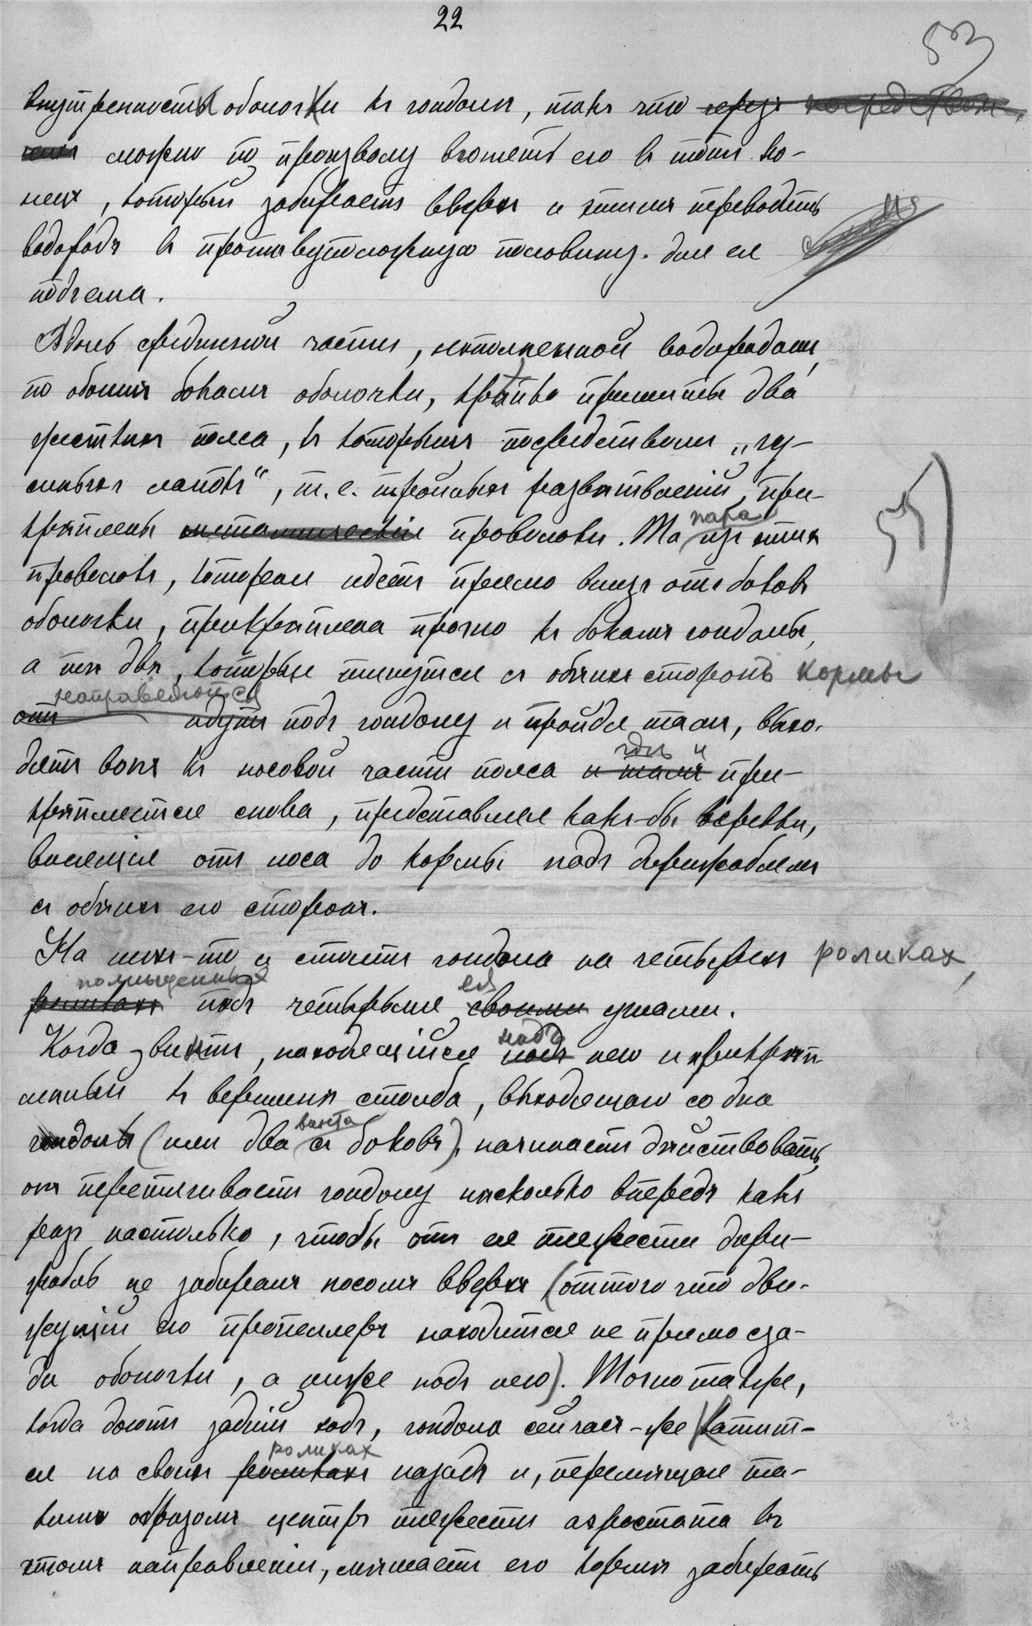 22
53
внутренность оболочки къ гондолѣ, такъ что черезъ посредствомъ
можно по произволу вгонять его въ тотъ ко-
нецъ, который забираетъ вверхъ и этимъ переводить
водородъ въ противуположную половину для ея
подъема.
Вдоль срединной части, наполненной водородомъ,
по обоимъ бокамъ оболочки, крѣпко пришиты два
жесткихъ пояса, къ которымъ посредствомъ „гу-
синыхъ лапокъ“, т. е. тройныхъ развѣтвленій, при-
крѣплены металлическія проволоки. Та пара изъ этихъ
проволокъ, которая идетъ прямо внизъ отъ боковъ
оболочки, прикрѣплена прочно къ бокамъ гондолы,
а тѣ двѣ, которыя тянутся съ обѣихъ сторонъ кормы
направляются
отъ идутъ подъ гондолу и пройдя тамъ, выхо-
дятъ вонъ къ носовой части пояса и тамъ гдѣ и при-
крѣпляется снова, представляя какъ-бы веревки,
висящія отъ носа до кормы подъ дирижаблемъ
съ обѣихъ его сторонъ.
На нихъ-то и стоитъ гондола на четырехъ роликах,
помѣщенныхъ
роликахъ подъ четырьмя ея своими углами.
Когда винтъ, находящійся надъ нею и прикрѣп-
ленный къ вершинѣ столба, выходящаго со дна
гондолы (или два винта съ боковъ), начинаетъ дѣйствовать,
онъ перетягиваетъ гондолу нѣсколько впередъ какъ
разъ настолько, чтобы отъ ея тяжести дири-
жабль не забиралъ носомъ вверхъ (оттого что дви-
жущій его пропеллеръ находится не прямо сза-
ди оболочки, а ниже подъ нею). Точно также,
когда даютъ задній ходъ, гондола сейчасъ-же катит-
роликах
ся на своихъ роликахъ назадъ и, перемѣщая та-
кимъ образомъ центръ тяжести аэростата въ
этомъ направленіи, мѣшаетъ его кормѣ забирать